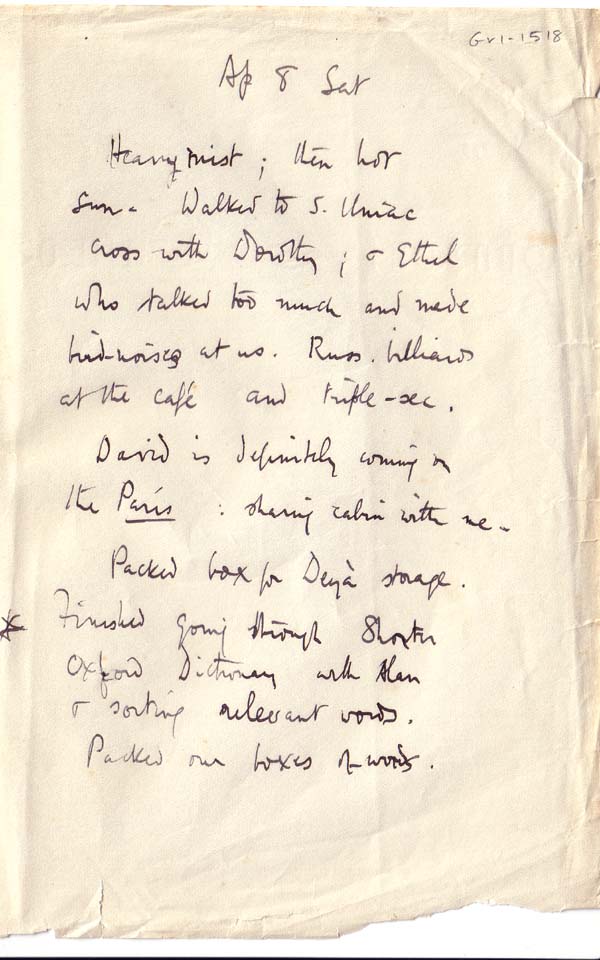 Gr1-1518
Ap 8 Sat
Heavy mist ; then hot
Sun. Walked to S. Uniac
cross with Dorothy ; & Ethel
who talked too much and made
bird-noises at us. Russ. billiards
at the café and triple-sec.
David is definitely coming on
the Paris : sharing cabin with me.
Packed box for Deyà storage.
* Finished going through Shorter
Oxford Dictionary with Alan
& sorting relevant words.
Packed our boxes of words.